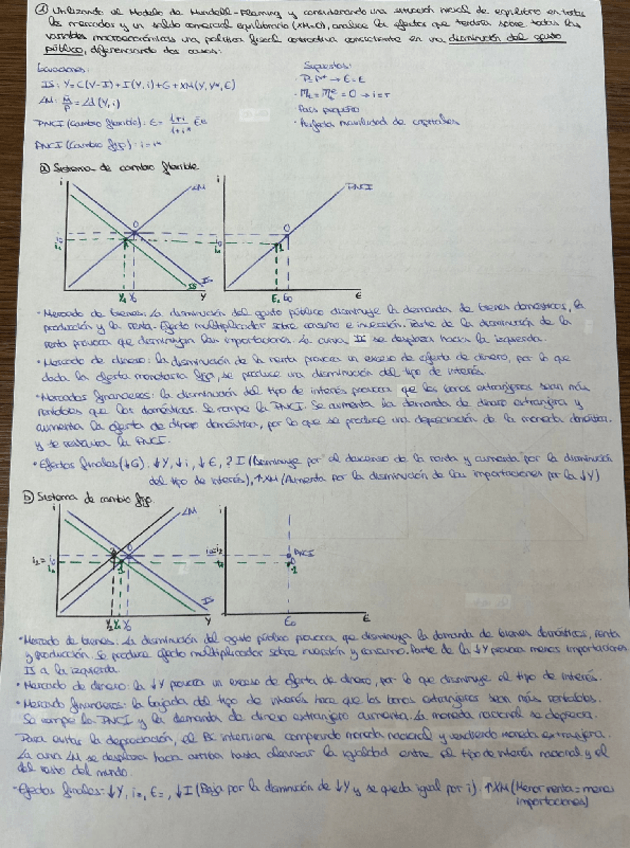 ① Utilizando el Modelo de Mundell-Fleming y considerando una situación inicial de equilibrio en todos
los mercados y un saldo comercial equilibrado (XM=0), analice los efectos que tendría sobre todas las
variables macroeconómicas una política fiscal contractiva consistente en una disminución del gasto
público, diferenciando dos casos:
Ecuaciones:
IS: Y=C(Y-T)+I(Y,i)+G+XM(Y,Y*,E)
LM: M/P = L(Y,i)
PNCI (Cambio flexible): E= 1+i/1+i* Ee
PNCI (Cambio fijo): i=i*
Supuestos:
P=P* → E=E
· = 0 → i=r
· País pequeño
· Perfecta movilidad de capitales
ⓐ Sistema de cambio flexible
i
LM
0
IS
IS
Y1 Y0
Y
i
PNCI
0
1
E1 E0
E
· Mercado de bienes: La disminución del gasto público disminuye la demanda de bienes domésticos, la
producción y la renta. Efecto multiplicador sobre consumo e inversión. Parte de la disminución de la
renta provoca que disminuyan las importaciones. La curva IS se desplaza hacia la izquierda.
· Mercado de dinero: la disminución de la renta provoca un exceso de oferta de dinero, por lo que
dada la oferta monetaria fija, se produce una disminución del tipo de interés.
· Mercados financieros: la disminución del tipo de interés provoca que los bonos extranjeros sean más
rentables que los domésticos. Se rompe la PNCI. Se aumenta la demanda de dinero extranjera y
aumenta la oferta de dinero doméstica, por lo que se produce una depreciación de la moneda doméstica.
y se restaura la PNCI.
· Efectos finales (↓G): ↓Y, ↓i, ↓E, ? I (Disminuye por el descenso de la renta y aumenta por la disminución
del tipo de interés), ↑XM (Aumenta por la disminución de las importaciones por la ↓Y)
ⓑ Sistema de cambio fijo
i
LM
0
1
IS
Y2 Y1 Y0
Y
i
PNCI
1
E0
E
· Mercado de bienes: La disminución del gasto público provoca que disminuya la demanda de bienes domésticos, renta
y producción. Se produce efecto multiplicador sobre inversión y consumo. Parte de la ↓Y provoca menos importaciones.
IS a la izquierda.
· Mercado de dinero: la ↓Y provoca un exceso de oferta de dinero, por lo que disminuye el tipo de interés.
· Mercado financieros: la bajada del tipo de interés hace que los bonos extranjeros sean más rentables.
Se rompe la PNCI y la demanda de dinero extranjero aumenta. La moneda nacional se deprecia.
Para evitar la depreciación, el BC interviene comprando moneda nacional y vendiendo moneda extranjera.
La curva LM se desplaza hacia arriba hasta alcanzar la igualdad entre el tipo de interés nacional y el
del resto del mundo.
· Efectos finales: ↓Y, i=, E=, ↓I (Baja por la disminución de ↓Y y se queda igual por i), ↑XM (Menor renta=menos
importaciones)